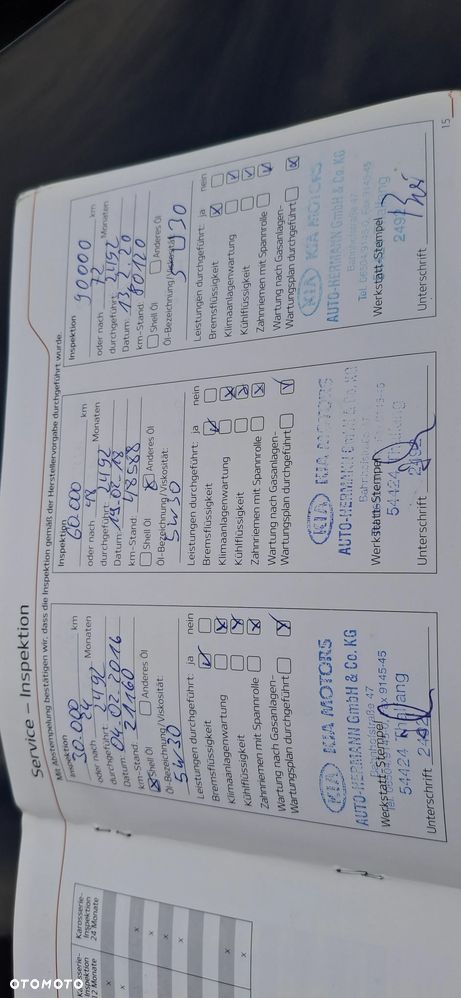 Service – Inspektion
Mit Abstempelung bestätigen wir, dass die Inspektion gemäß der Herstellervorgabe durchgeführt wurde.
Inspektion
30.000 km
oder nach 24 Monaten
durchgeführt: 2492
Datum: 04.02.2016
km-Stand: 21160
Shell Öl Anderes Öl
Öl-Bezeichnung/Viskosität:
5w30
Leistungen durchgeführt: ja nein
Bremsflüssigkeit
Klimaanlagenwartung
Kühlflüssigkeit
Zahnriemen mit Spannrolle
Wartung nach Gasanlagen-
Wartungsplan durchgeführt
KIA KIA MOTORS
AUTO-HERMANN GmbH & Co. KG
Bahnhofstraße 47
9145-45
Werkstatt-Stempel
54424 Thalfang
2492
Unterschrift
Inspektion
60.000 km
oder nach 48 Monaten
durchgeführt: 2492
Datum: 19.02.18
km-Stand: 48588
Shell Öl Anderes Öl
Öl-Bezeichnung/Viskosität:
5w30
Leistungen durchgeführt: ja nein
Bremsflüssigkeit
Klimaanlagenwartung
Kühlflüssigkeit
Zahnriemen mit Spannrolle
Wartung nach Gasanlagen-
Wartungsplan durchgeführt
KIA KIA MOTORS
AUTO-HERMANN GmbH & Co. KG
Werkstatt-Stempel
54424
2492
Unterschrift
Inspektion
90000 km
oder nach 72 Monaten
durchgeführt: 2492
Datum: 13.2.20
km-Stand: 80120
Shell Öl Anderes Öl
Öl-Bezeichnung/Viskosität:
5w30
Leistungen durchgeführt: ja nein
Bremsflüssigkeit
Klimaanlagenwartung
Kühlflüssigkeit
Zahnriemen mit Spannrolle
Wartung nach Gasanlagen-
Wartungsplan durchgeführt
KIA KIA MOTORS
AUTO-HERMANN GMBH & Co. KG
Bahnhofstraße 47
9145-45
Werkstatt-Stempel
2492
Unterschrift
15
Karosserie-
Inspektion
12 Monate
Karosserie-
Inspektion
24 Monate
x
x
x
x
x
x
x
x
OTOMOTO